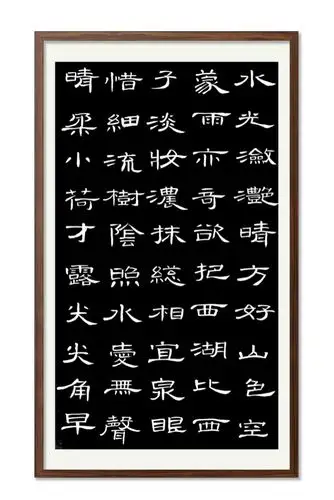 水光瀲灩晴方好山色空
蒙雨亦奇欲把西湖比西
子淡妝濃抹總相宜泉眼
惜細流樹陰照水愛無聲
晴柔小荷才露尖尖角早